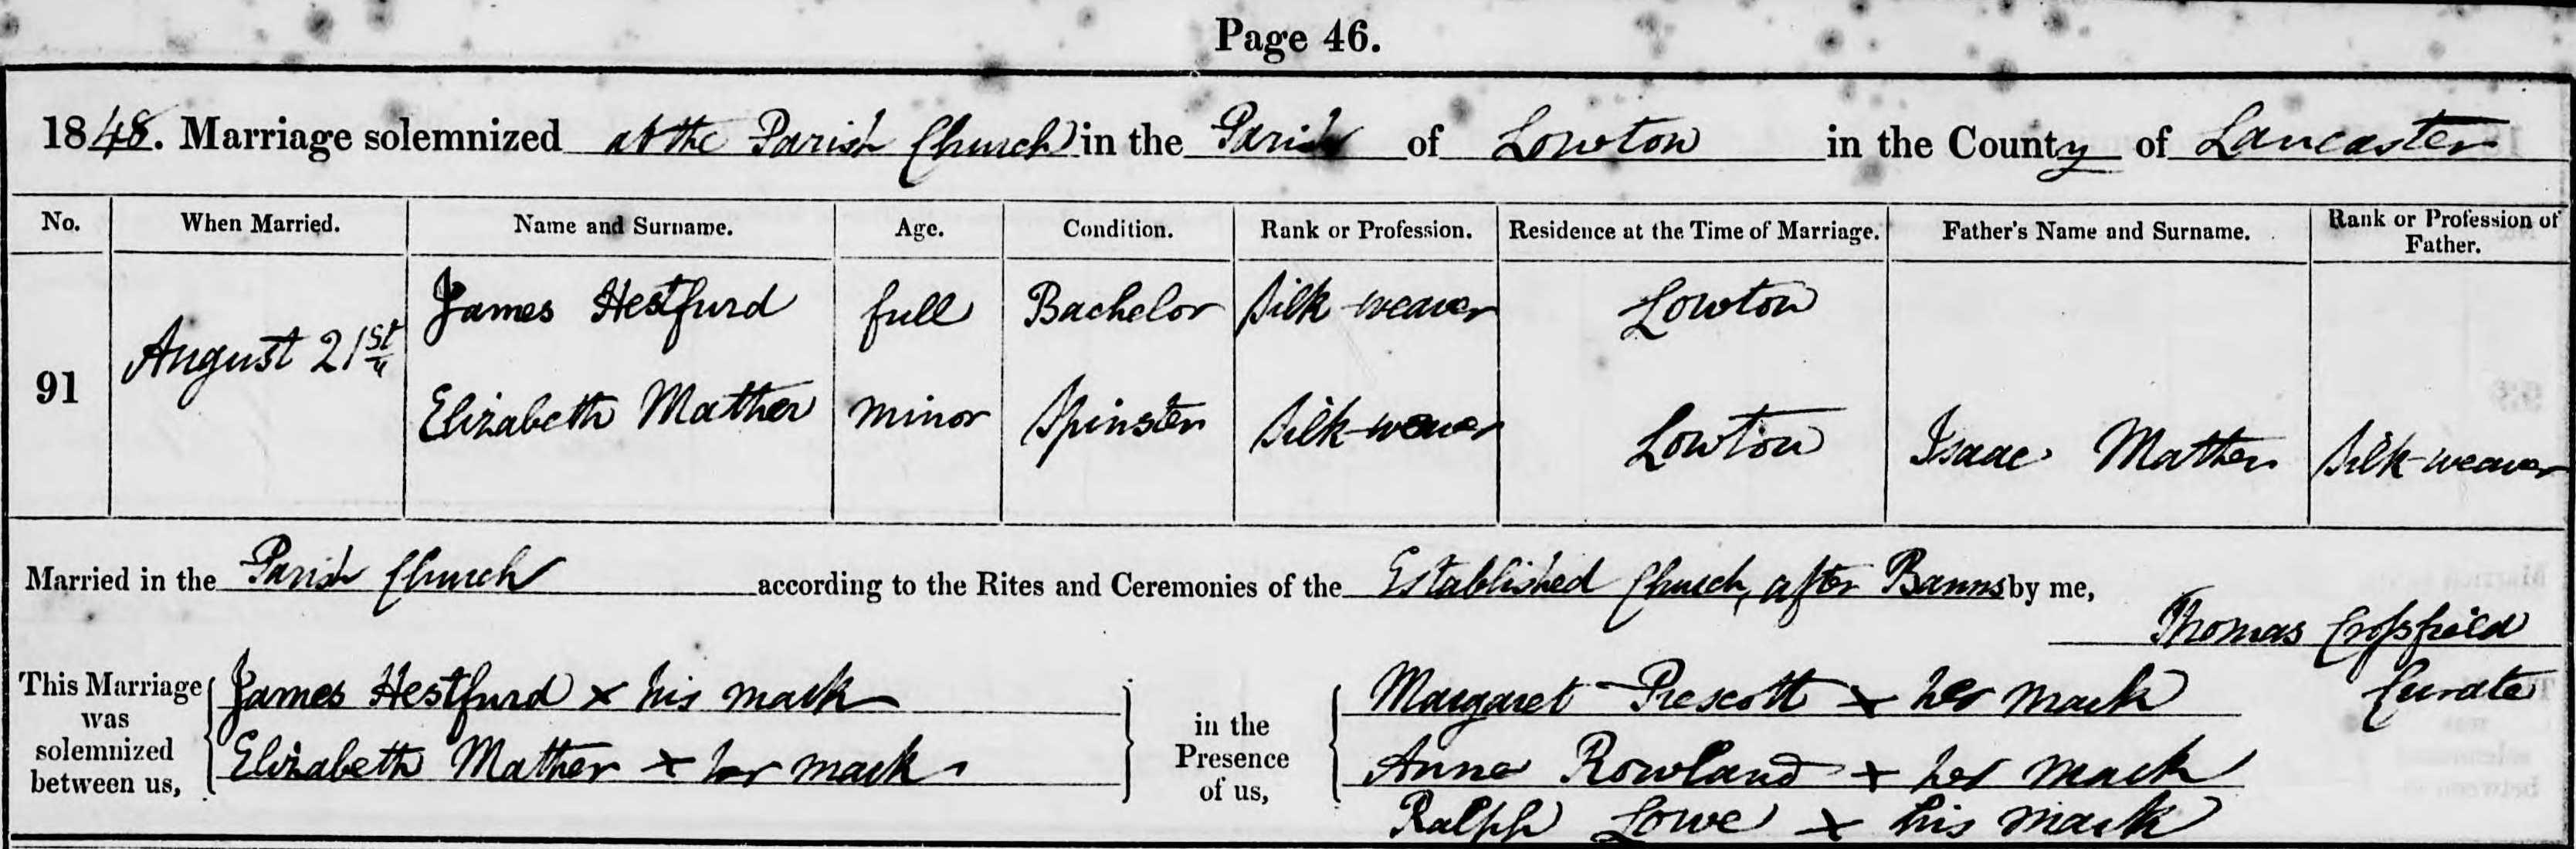 Page 46.
1848. Marriage solemnized at the Parish Church in the Parish of Lowton in the County of Lancaster
No. When Married. Name and Surname. Age. Condition. Rank or Profession. Residence at the Time of Marriage. Father's Name and Surname. Rank or Profession of Father.
James Hestfurd full Bachelor Silk weaver Lowton
91 August 21st
Elizabeth Mather minor Spinster Silk-weaver Lowton Isaac Mather Silk-weaver
Married in the Parish Church according to the Rites and Ceremonies of the Established Church, after Banns by me,
Thomas Crossfield
Curate
This Marriage was solemnized between us,
James Hestfurd x his mark
Elizabeth Mather x her mark
in the Presence of us,
Margaret Prescott x her mark
Anne Rowland x her mark
Ralph Lowe x his mark